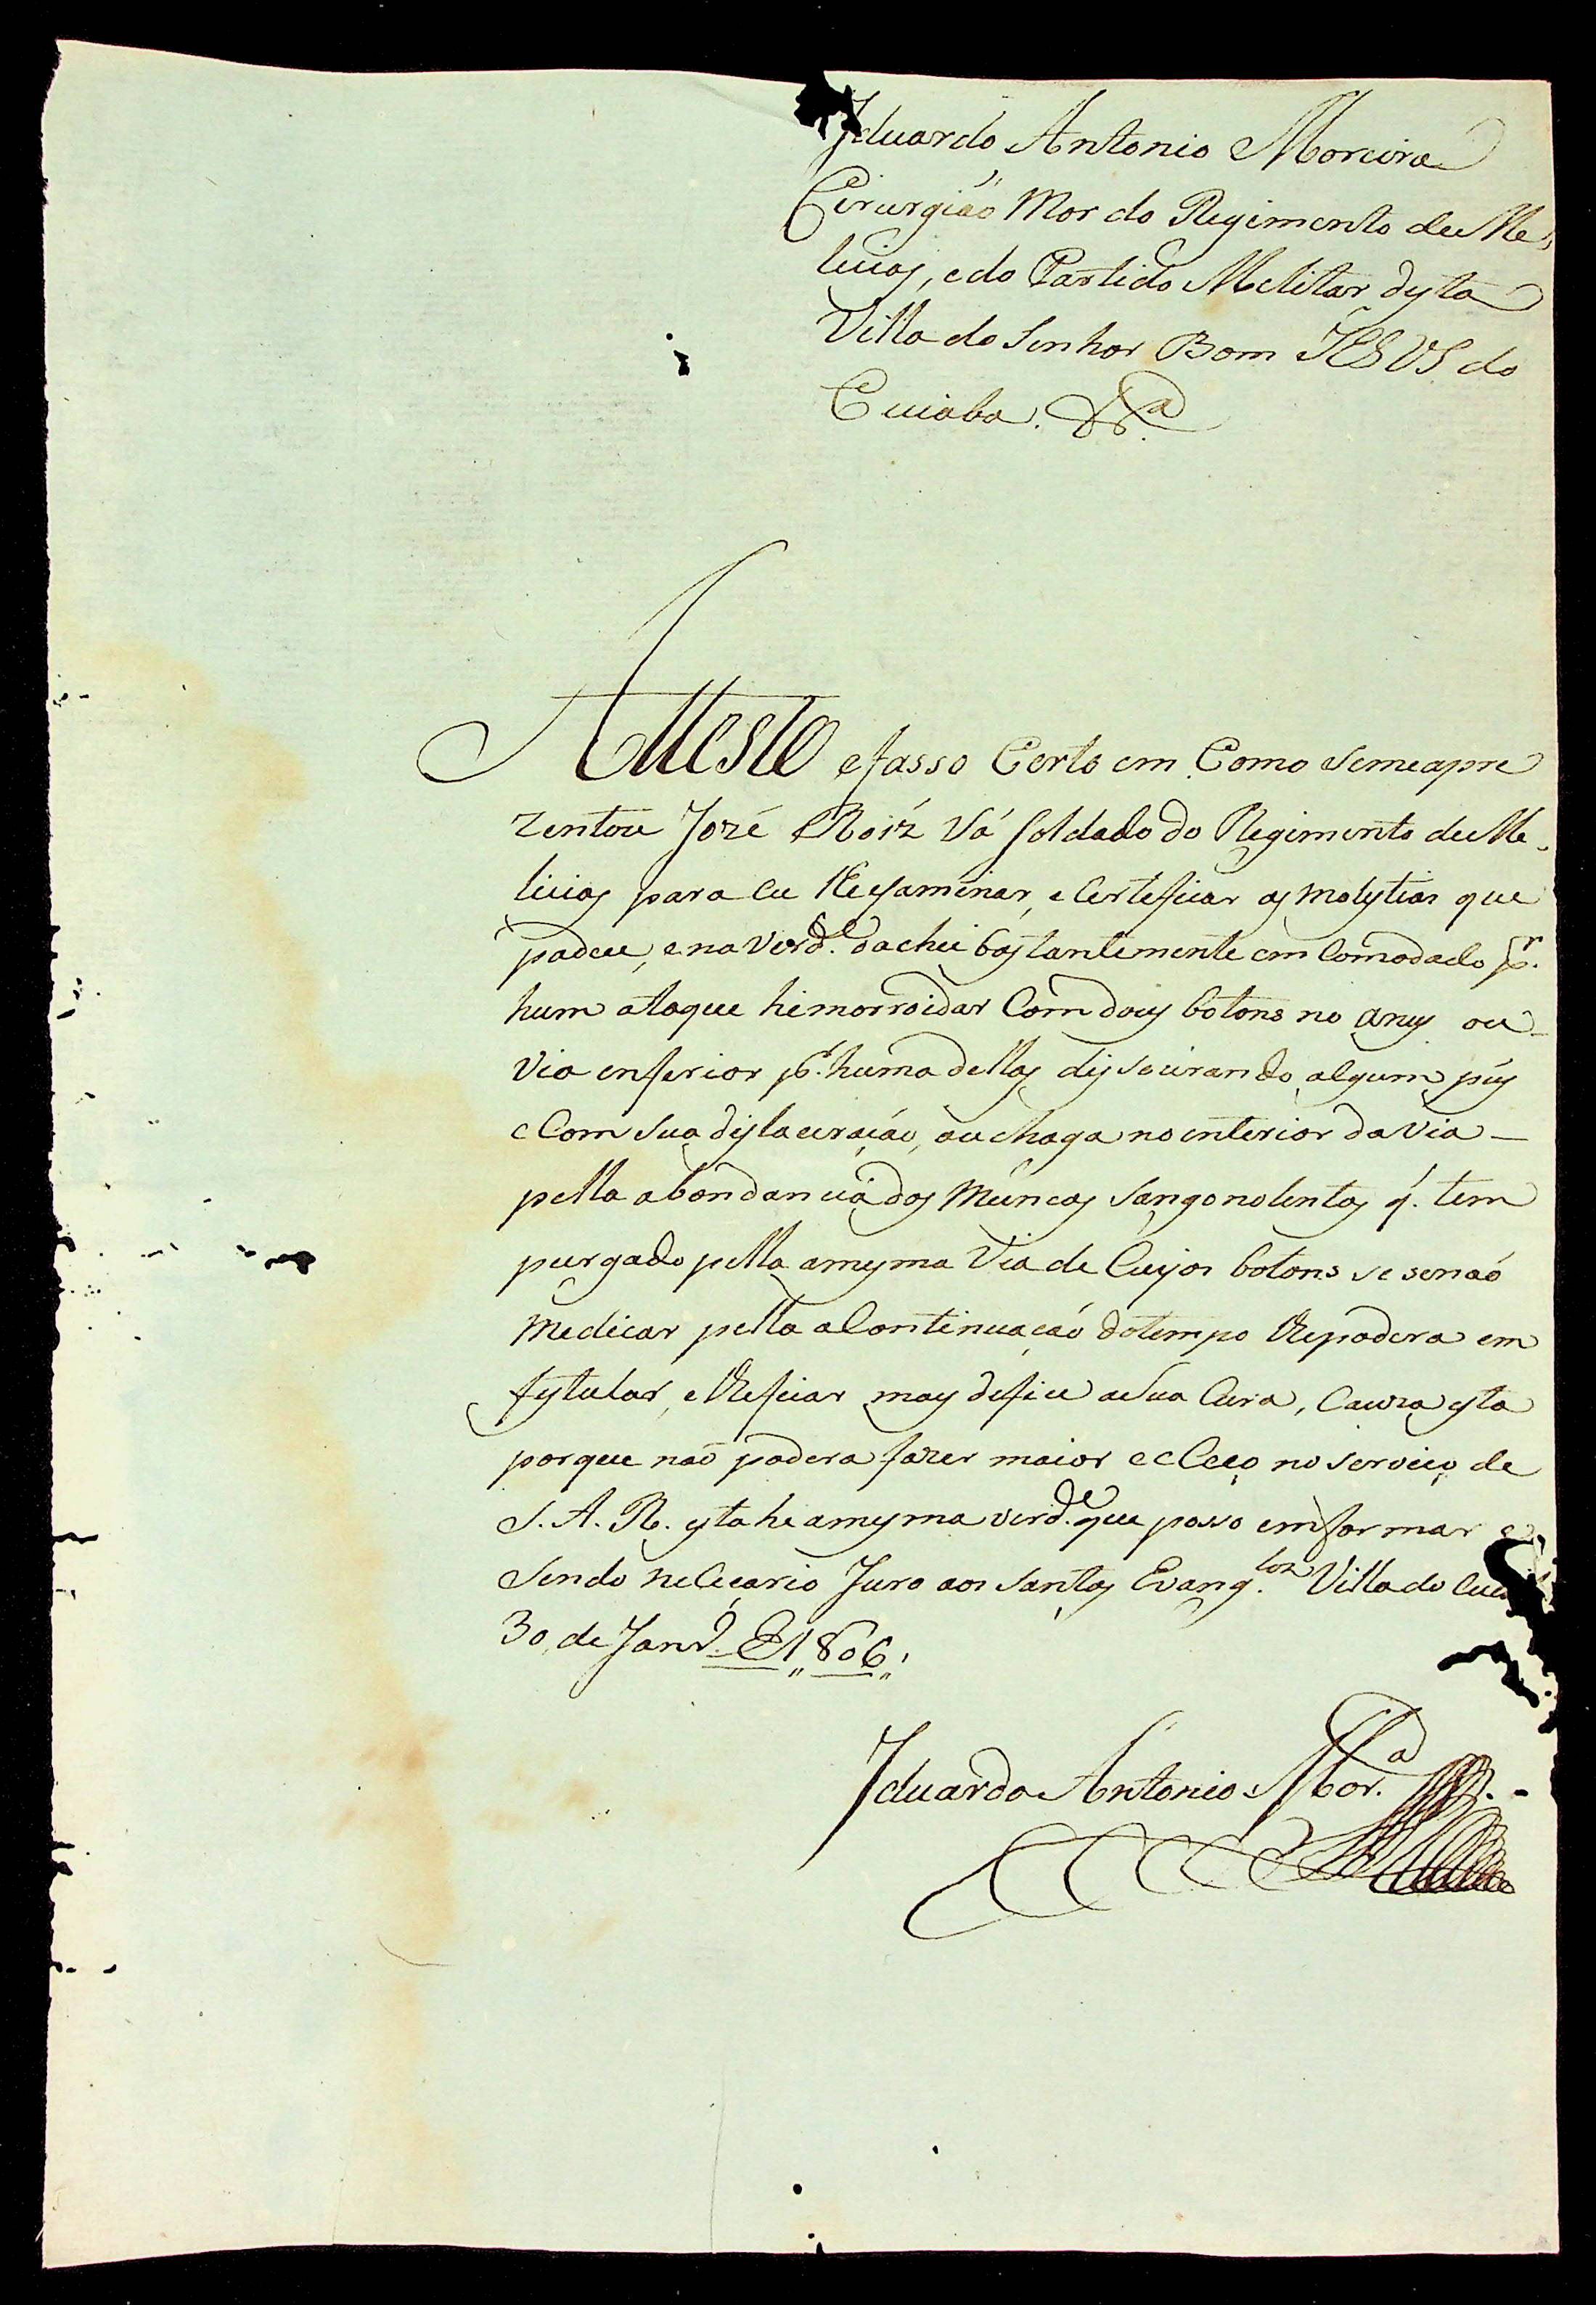 Iduardo Antonio Moreira
Cirurgiaõ Mor do Regimento de Me,
licias, edo Partido Melitar desta
Villa do Senhor Bom JESUS do
Cuiaba. &.ª
Atteste efasso Certo em Como Semeapre
zentou Jozé Roiz Vá Soldado do Regimento de Me,
licias para eu Reexaminar, e Certeficar as molestias que
padece, e na Verd.e oachei bastantemente em Comodado p.r
hum ataque hemorroidar Com dous botons no anus ou
Via enferior p.r huma dellas dissourando algum pús
e Com sua deslaceração, ou chaga no interior da via —
pella abondancia dos Muncos Sangonolentos q. tem
purgado pella amesma Via de Cujos botons se senaõ
Medicar pella aContinuaçaõ dotempo Repodera em
festular, e Reficar mais defice aSua Cura, Cauza esta
porque naõ podera fazer maior ecCeço no Serviço de
S. A. R. esta he amesma verd.e que posso emformar e
Sendo neCeçario Juro aos Santos Evang.los Villa do
30, de Janr.o d 1806.
Iduardo Antonio Mor.a